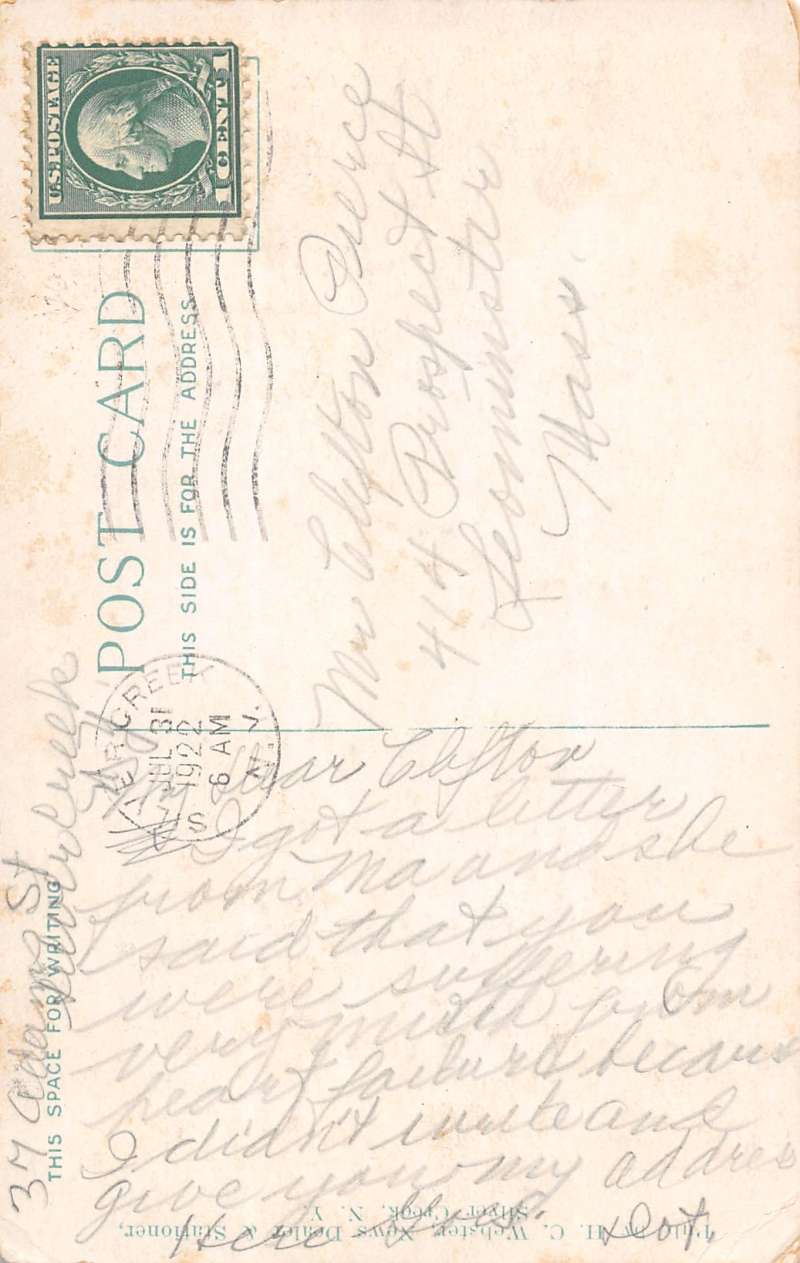 U.S. POSTAGE
1 CENT 1
POST CARD
THIS SIDE IS FOR THE ADDRESS
SILVER CREEK
JUL 31
1922
6 AM
N.Y.
Mr Clifton Pierce
414 Prospect St
Leominster
Mass.
THIS SPACE FOR WRITING
37 Adams St
Silver Creek
N.Y.
My dear Clifton
I got a letter
from Ma and she
said that you
were suffering
very much from
heart failure because
I didn't write and
give you my address
Here Goes. Dot.
Pub. by H. C. Webster, News Dealer & Stationer,
Silver Creek, N. Y.